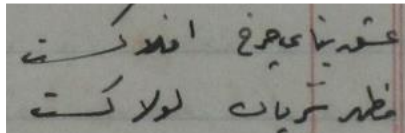 عشق بنای چرخ افلاکست
مظهر شریان لولاکست